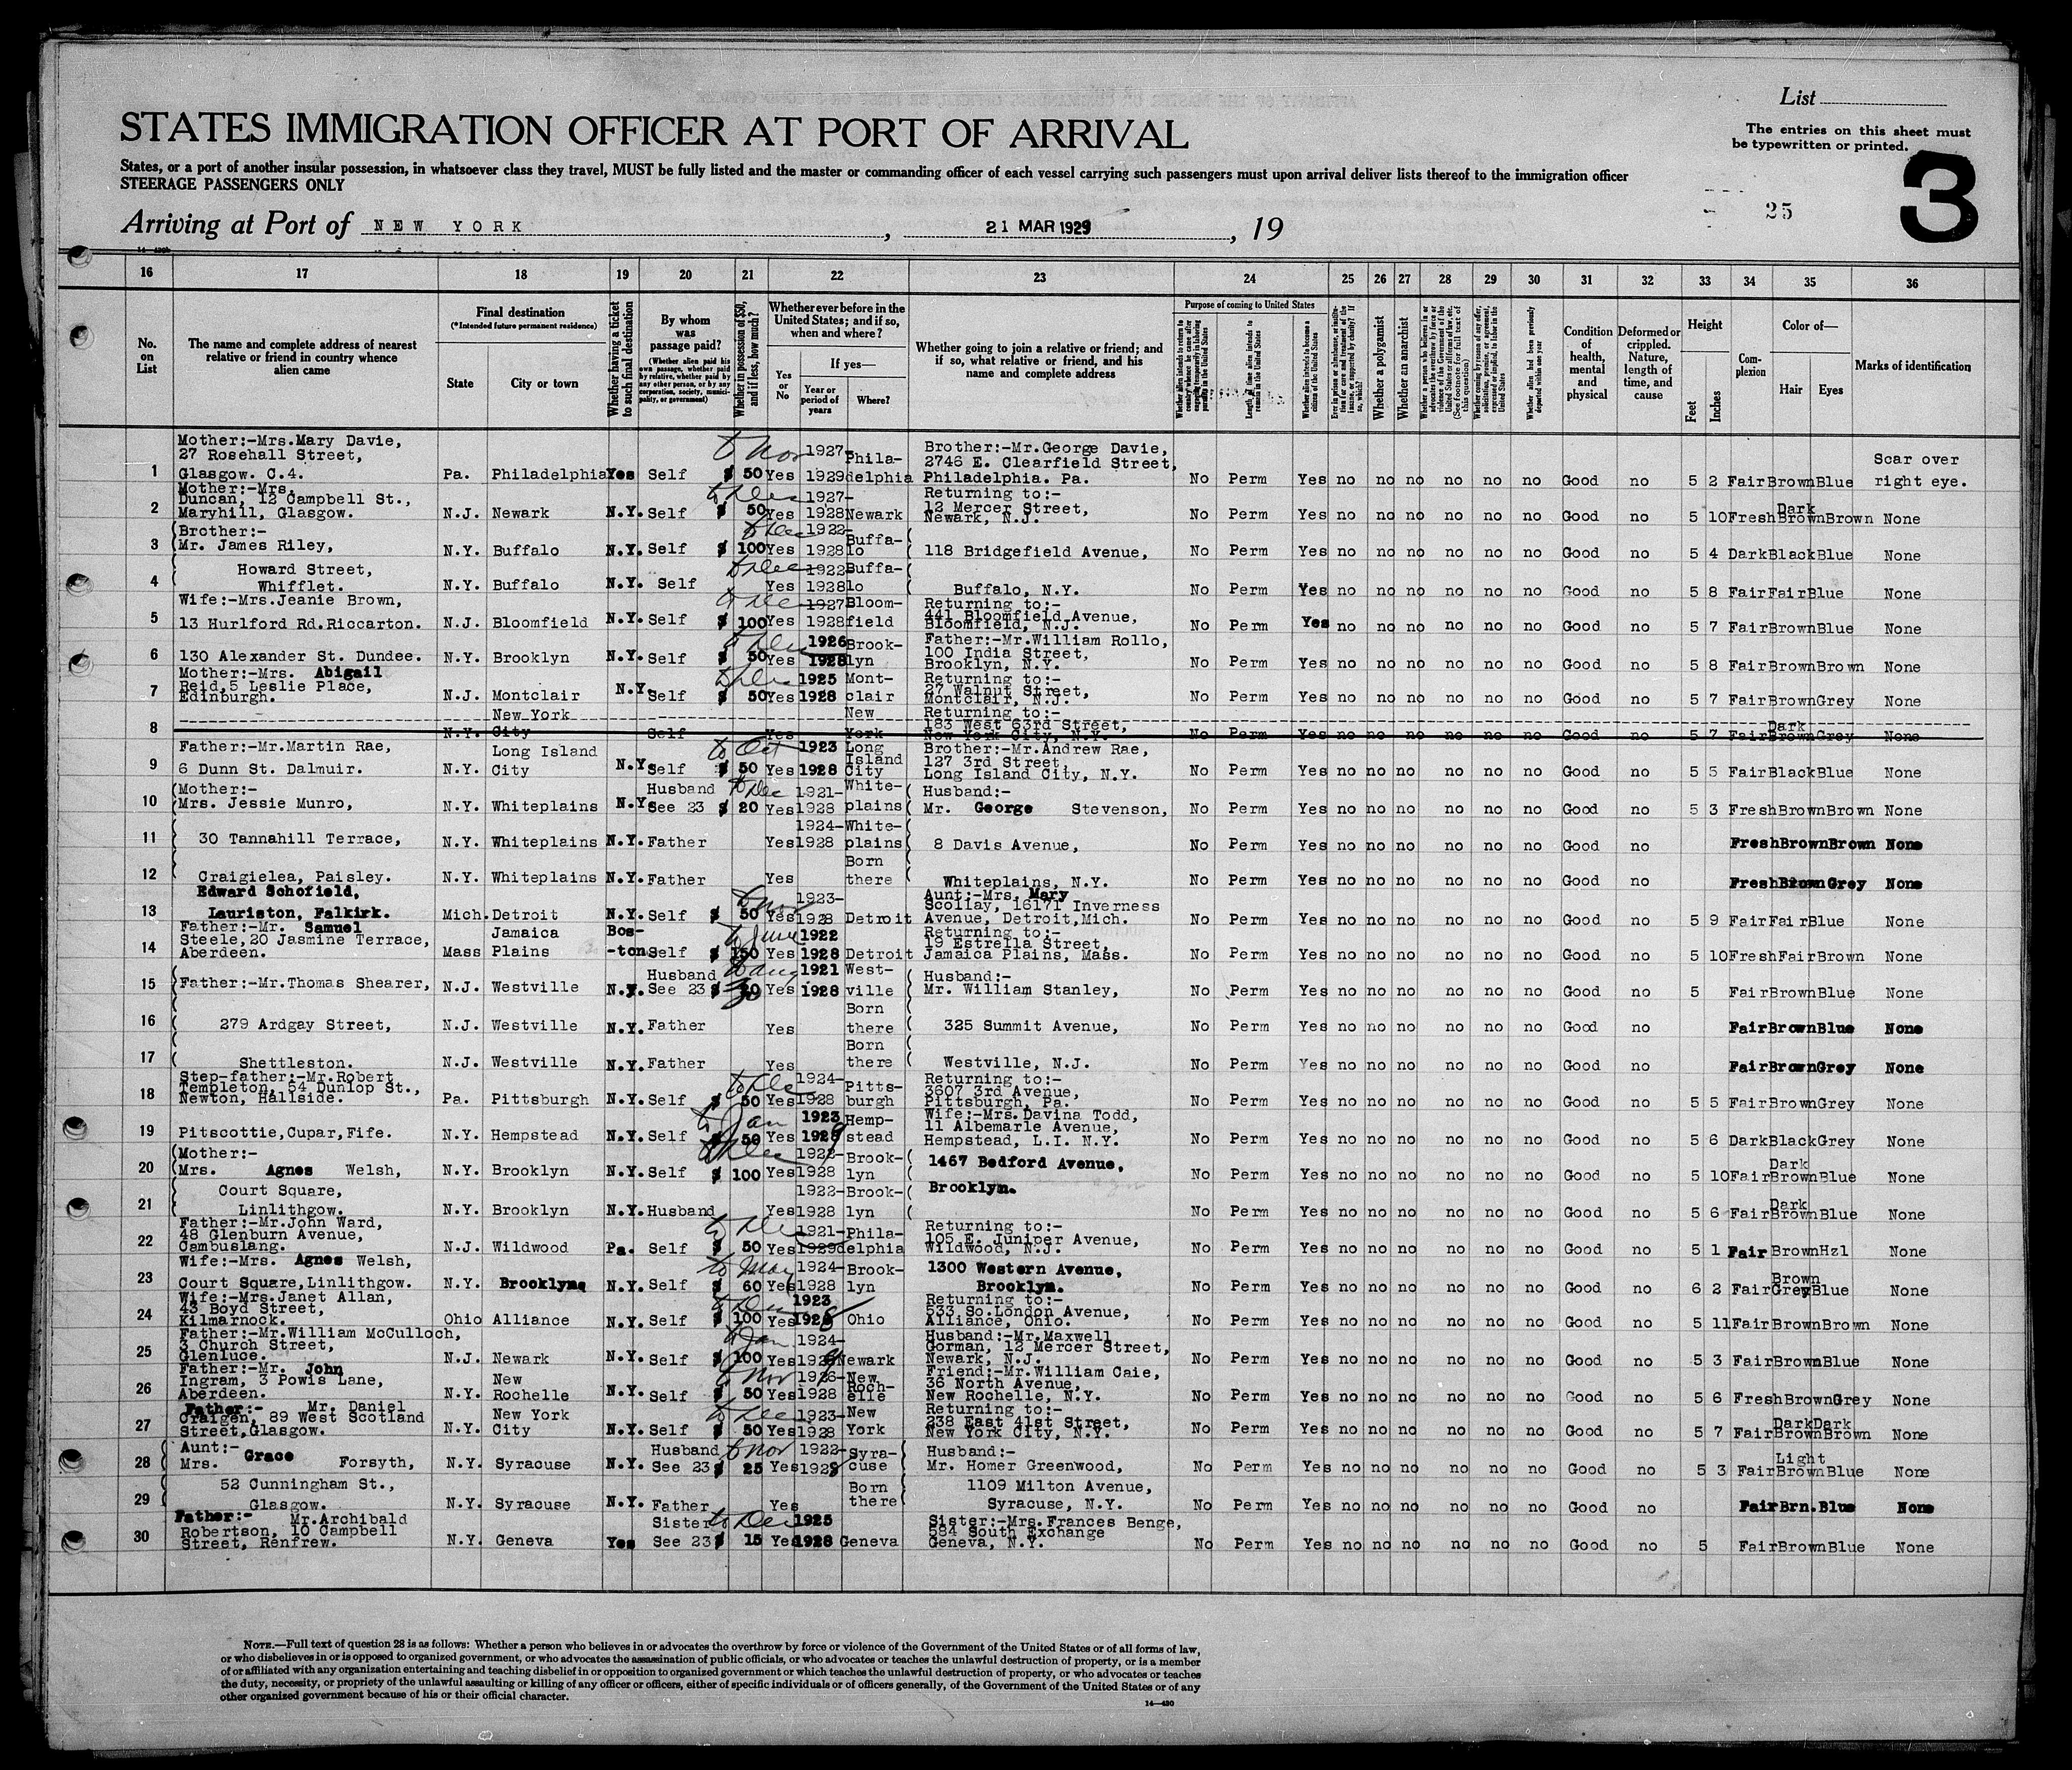 List
STATES IMMIGRATION OFFICER AT PORT OF ARRIVAL
The entries on this sheet must
be typewritten or printed.
States, or a port of another insular possession, in whatsoever class they travel, MUST be fully listed and the master or commanding officer of each vessel carrying such passengers must upon arrival deliver lists thereof to the immigration officer
STEERAGE PASSENGERS ONLY
3
25
Arriving at Port of NEW YORK, 21 MAR 1929, 19
16 17 18 19 20 21 22 23 24 25 26 27 28 29 30 31 32 33 34 35 36
No. on List
The name and complete address of nearest relative or friend in country whence alien came
Final destination
(*Intended future permanent residence)
State City or town
Whether having a ticket to such final destination
By whom was passage paid?
(Whether alien paid his own passage, whether paid by relative, whether paid by any other person, or by any corporation, society, municipality, or government)
Whether in possession of $50, and if less, how much?
Whether ever before in the United States; and if so, when and where?
Yes or No
If yes—
Year or period of years Where?
Whether going to join a relative or friend; and if so, what relative or friend, and his name and complete address
Purpose of coming to United States
Length of time alien intends to remain in the United States
Whether alien intends to become a citizen of the United States
Whether a polygamist
Whether an anarchist
Condition of health, mental and physical
Deformed or crippled. Nature, length of time, and cause
Height
Feet Inches
Complexion
Color of—
Hair Eyes
Marks of identification
1 Mother:-Mrs.Mary Davie, 27 Rosehall Street, Glasgow. C.4. Pa. Philadelphia Yes Self $ 50 Yes to Nov 1927-1929 Philadelphia Brother:-Mr.George Davie, 2746 E. Clearfield Street, Philadelphia. Pa. No Perm Yes no no no no no no Good no 5 2 Fair Brown Blue Scar over right eye.
2 Mother:-Mrs. Duncan, 12 Campbell St., Maryhill, Glasgow. N.J. Newark N.Y. Self $ 50 Yes to Dec 1927-1928 Newark Returning to:- 12 Mercer Street, Newark, N.J. No Perm Yes no no no no no no Good no 5 10 Fresh Dark Brown Brown None
3 Brother:- Mr. James Riley, N.Y. Buffalo N.Y. Self $ 100 Yes to Dec 1922-1928 Buffalo 118 Bridgefield Avenue, No Perm Yes no no no no no no Good no 5 4 Dark Black Blue None
4 Howard Street, Whifflet. N.Y. Buffalo N.Y. Self Yes to Dec 1922 1928 Buffalo Buffalo, N.Y. No Perm Yes no no no no no no Good no 5 8 Fair Fair Blue None
5 Wife:-Mrs.Jeanie Brown, 13 Hurlford Rd.Riccarton. N.J. Bloomfield N.Y. Self $ 100 Yes to Dec 1927 1928 Bloomfield Returning to:- 441 Bloomfield Avenue, Bloomfield, N.J. No Perm Yes no no no no no no Good no 5 7 Fair Brown Blue None
6 130 Alexander St. Dundee. N.Y. Brooklyn N.Y. Self $ 50 Yes to Dec 1926 1928 Brooklyn Father:-Mr.William Rollo, 100 India Street, Brooklyn, N.Y. No Perm Yes no no no no no no Good no 5 8 Fair Brown Brown None
7 Mother:-Mrs. Abigail Reid,5 Leslie Place, Edinburgh. N.J. Montclair N.Y. Self $ 50 Yes to Dec 1925 1928 Montclair Returning to:- 27 Walnut Street, Montclair, N.J. No Perm Yes no no no no no no Good no 5 7 Fair Brown Grey None
8 N.Y. New York City Self Yes New York Returning to:- 183 West 63rd Street, New York City, N.Y. No Perm Yes no no no no no no Good no 5 7 Fair Dark Brown Grey None
9 Father:-Mr.Martin Rae, 6 Dunn St. Dalmuir. N.Y. Long Island City N.Y. Self $ 50 Yes to Oct 1923 1928 Long Island City Brother:-Mr.Andrew Rae, 127 3rd Street, Long Island City, N.Y. No Perm Yes no no no no no no Good no 5 5 Fair Black Blue None
10 Mother:- Mrs. Jessie Munro, N.Y. Whiteplains N.Y. Husband See 23 $ 20 Yes to Dec 1921-1928 Whiteplains Husband:- Mr. George Stevenson, No Perm Yes no no no no no no Good no 5 3 Fresh Brown Brown None
11 30 Tannahill Terrace, N.Y. Whiteplains N.Y. Father Yes 1924-1928 Whiteplains 8 Davis Avenue, No Perm Yes no no no no no no Good no Fresh Brown Brown None
12 Craigielea, Paisley. N.Y. Whiteplains N.Y. Father Yes Born there Whiteplains, N.Y. No Perm Yes no no no no no no Good no Fresh Brown Grey None
13 Edward Schofield, Lauriston, Falkirk. Mich. Detroit N.Y. Self $ 50 Yes to Nov 1923-1928 Detroit Aunt:-Mrs. Mary Scollay, 16171 Inverness Avenue, Detroit,Mich. No Perm Yes no no no no no no Good no 5 9 Fair Fair Blue None
14 Father:-Mr. Samuel Steele,20 Jasmine Terrace, Aberdeen. Mass Jamaica Plains Bos-ton Self $ 150 Yes to June 1922 1928 Detroit Returning to:- 19 Estrella Street, Jamaica Plains, Mass. No Perm Yes no no no no no no Good no 5 10 Fresh Fair Brown None
15 Father:-Mr.Thomas Shearer, N.J. Westville N.Y. Husband See 23 $ 30 Yes to Aug 1921 1928 Westville Husband:- Mr. William Stanley, No Perm Yes no no no no no no Good no 5 Fair Brown Blue None
16 279 Ardgay Street, N.J. Westville N.Y. Father Yes Born there 325 Summit Avenue, No Perm Yes no no no no no no Good no Fair Brown Blue None
17 Shettleston. N.J. Westville N.Y. Father Yes Born there Westville, N.J. No Perm Yes no no no no no no Good no Fair Brown Grey None
18 Step-father:-Mr.Robert Templeton, 54 Dunlop St., Newton, Hallside. Pa. Pittsburgh N.Y. Self $ 50 Yes to Dec 1924-1928 Pittsburgh Returning to:- 3607 3rd Avenue, Pittsburgh, Pa. No Perm Yes no no no no no no Good no 5 5 Fair Brown Grey None
19 Pitscottie,Cupar,Fife. N.Y. Hempstead N.Y. Self $ 50 Yes to Jan 1923 1929 Hempstead Wife:-Mrs.Davina Todd, 11 Albemarle Avenue, Hempstead, L.I. N.Y. No Perm Yes no no no no no no Good no 5 6 Dark Black Grey None
20 Mother:- Mrs. Agnes Welsh, N.Y. Brooklyn N.Y. Self $ 100 Yes to Dec 1922-1928 Brooklyn 1467 Bedford Avenue, No Perm Yes no no no no no no Good no 5 10 Fair Dark Brown Blue None
21 Court Square, Linlithgow. N.Y. Brooklyn N.Y. Husband Yes 1922-1928 Brooklyn Brooklyn. No Perm Yes no no no no no no Good no 5 6 Fair Dark Brown Blue None
22 Father:-Mr.John Ward, 48 Glenburn Avenue, Cambuslang. N.J. Wildwood Pa. Self $ 50 Yes to Dec 1921-1929 Philadelphia Returning to:- 105 E. Juniper Avenue, Wildwood, N.J. No Perm Yes no no no no no no Good no 5 1 Fair Brown Hzl None
23 Wife:-Mrs. Agnes Welsh, Court Square,Linlithgow. N.Y. Brooklyn N.Y. Self $ 60 Yes to May 1924-1928 Brooklyn 1300 Western Avenue, Brooklyn. No Perm Yes no no no no no no Good no 6 2 Fair Brown Grey Blue None
24 Wife:-Mrs.Janet Allan, 43 Boyd Street, Kilmarnock. Ohio Alliance N.Y. Self $ 100 Yes to Dec 1923 1928 Ohio Returning to:- 533 So.London Avenue, Alliance, Ohio. No Perm Yes no no no no no no Good no 5 11 Fair Brown Brown None
25 Father:-Mr.William McCulloch, 3 Church Street, Glenluce. N.J. Newark N.Y. Self $ 100 Yes to Jan 1924-1929 Newark Husband:-Mr.Maxwell Gorman, 12 Mercer Street, Newark, N.J. No Perm Yes no no no no no no Good no 5 3 Fair Brown Blue None
26 Father:-Mr. John Ingram, 3 Powis Lane, Aberdeen. N.Y. New Rochelle N.Y. Self $ 50 Yes to Nov 1926-1928 New Rochelle Friend:-Mr.William Caie, 36 North Avenue, New Rochelle, N.Y. No Perm Yes no no no no no no Good no 5 6 Fresh Brown Grey None
27 Father:- Mr. Daniel Craigen, 89 West Scotland Street,Glasgow. N.Y. New York City N.Y. Self $ 50 Yes to Dec 1923-1928 New York Returning to:- 238 East 41st Street, New York City, N.Y. No Perm Yes no no no no no no Good no 5 7 Fair Dark Brown Dark Brown None
28 Aunt:- Mrs. Grace Forsyth, N.Y. Syracuse N.Y. Husband See 23 $ 25 Yes to Nov 1922-1928 Syracuse Husband:- Mr. Homer Greenwood, No Perm Yes no no no no no no Good no 5 3 Fair Light Brown Blue None
29 52 Cunningham St., Glasgow. N.Y. Syracuse N.Y. Father Yes Born there 1109 Milton Avenue, Syracuse, N.Y. No Perm Yes no no no no no no Good no Fair Brn. Blue None
30 Father:- Mr.Archibald Robertson, 10 Campbell Street, Renfrew. N.Y. Geneva Yes Sister See 23 $ 15 Yes to Dec 1925 1928 Geneva Sister:-Mrs.Frances Benge, 584 South Exchange Geneva, N.Y. No Perm Yes no no no no no no Good no 5 Fair Brown Blue None
NOTE.—Full text of question 28 is as follows: Whether a person who believes in or advocates the overthrow by force or violence of the Government of the United States or of all forms of law,
or who disbelieves in or is opposed to organized government, or who advocates the assassination of public officials, or who advocates or teaches the unlawful destruction of property, or is a member
of or affiliated with any organization entertaining and teaching disbelief in or opposition to organized government or which teaches the unlawful destruction of property, or who advocates or teaches
the duty, necessity, or propriety of the unlawful assaulting or killing of any officer or officers, either of specific individuals or of officers generally, of the Government of the United States or of any
other organized government because of his or their official character.
14—430